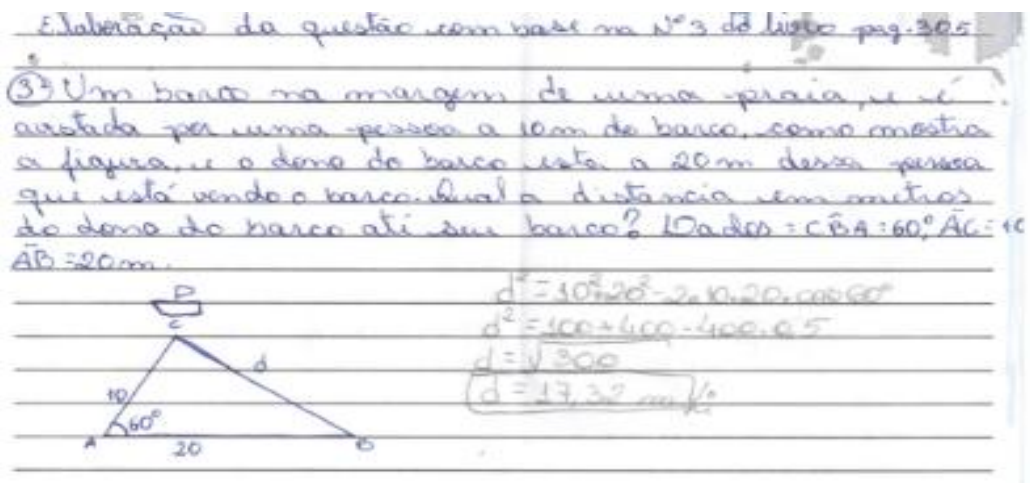 Elaboração da questão com base na Nº 3 do livro pag. 305
3ª) Um barco na margem de uma praia, e é
avistada por uma pessoa a 10m do barco, como mostra
a figura, e o dono do barco esta a 20m dessa pessoa
que está vendo o barco. Qual a distancia em metros
do dono do barco até seu barco? Dados = CB̂A = 60°, ĀC =
ĀB = 20m.
d² = 10²+20² - 2.10.20.cos60°
d² = 100 + 400 - 400.0,5
d = √300
d = 17,32 m
C
d
10
60°
A
20
B